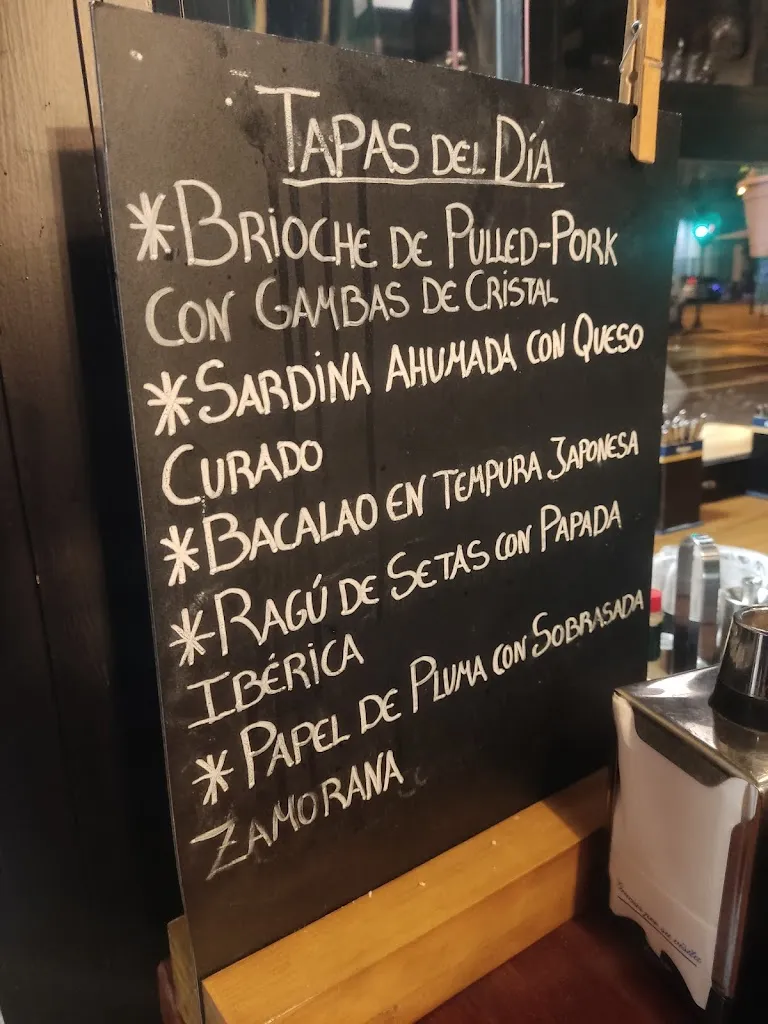 TAPAS DEL DÍA
*BRIOCHE DE PULLED-PORK
CON GAMBAS DE CRISTAL
*SARDINA AHUMADA CON QUESO
CURADO
*BACALAO EN TEMPURA JAPONESA
*RAGÚ DE SETAS CON PAPADA
IBÉRICA
*PAPEL DE PLUMA CON SOBRASADA
ZAMORANA
Gracias por su visita